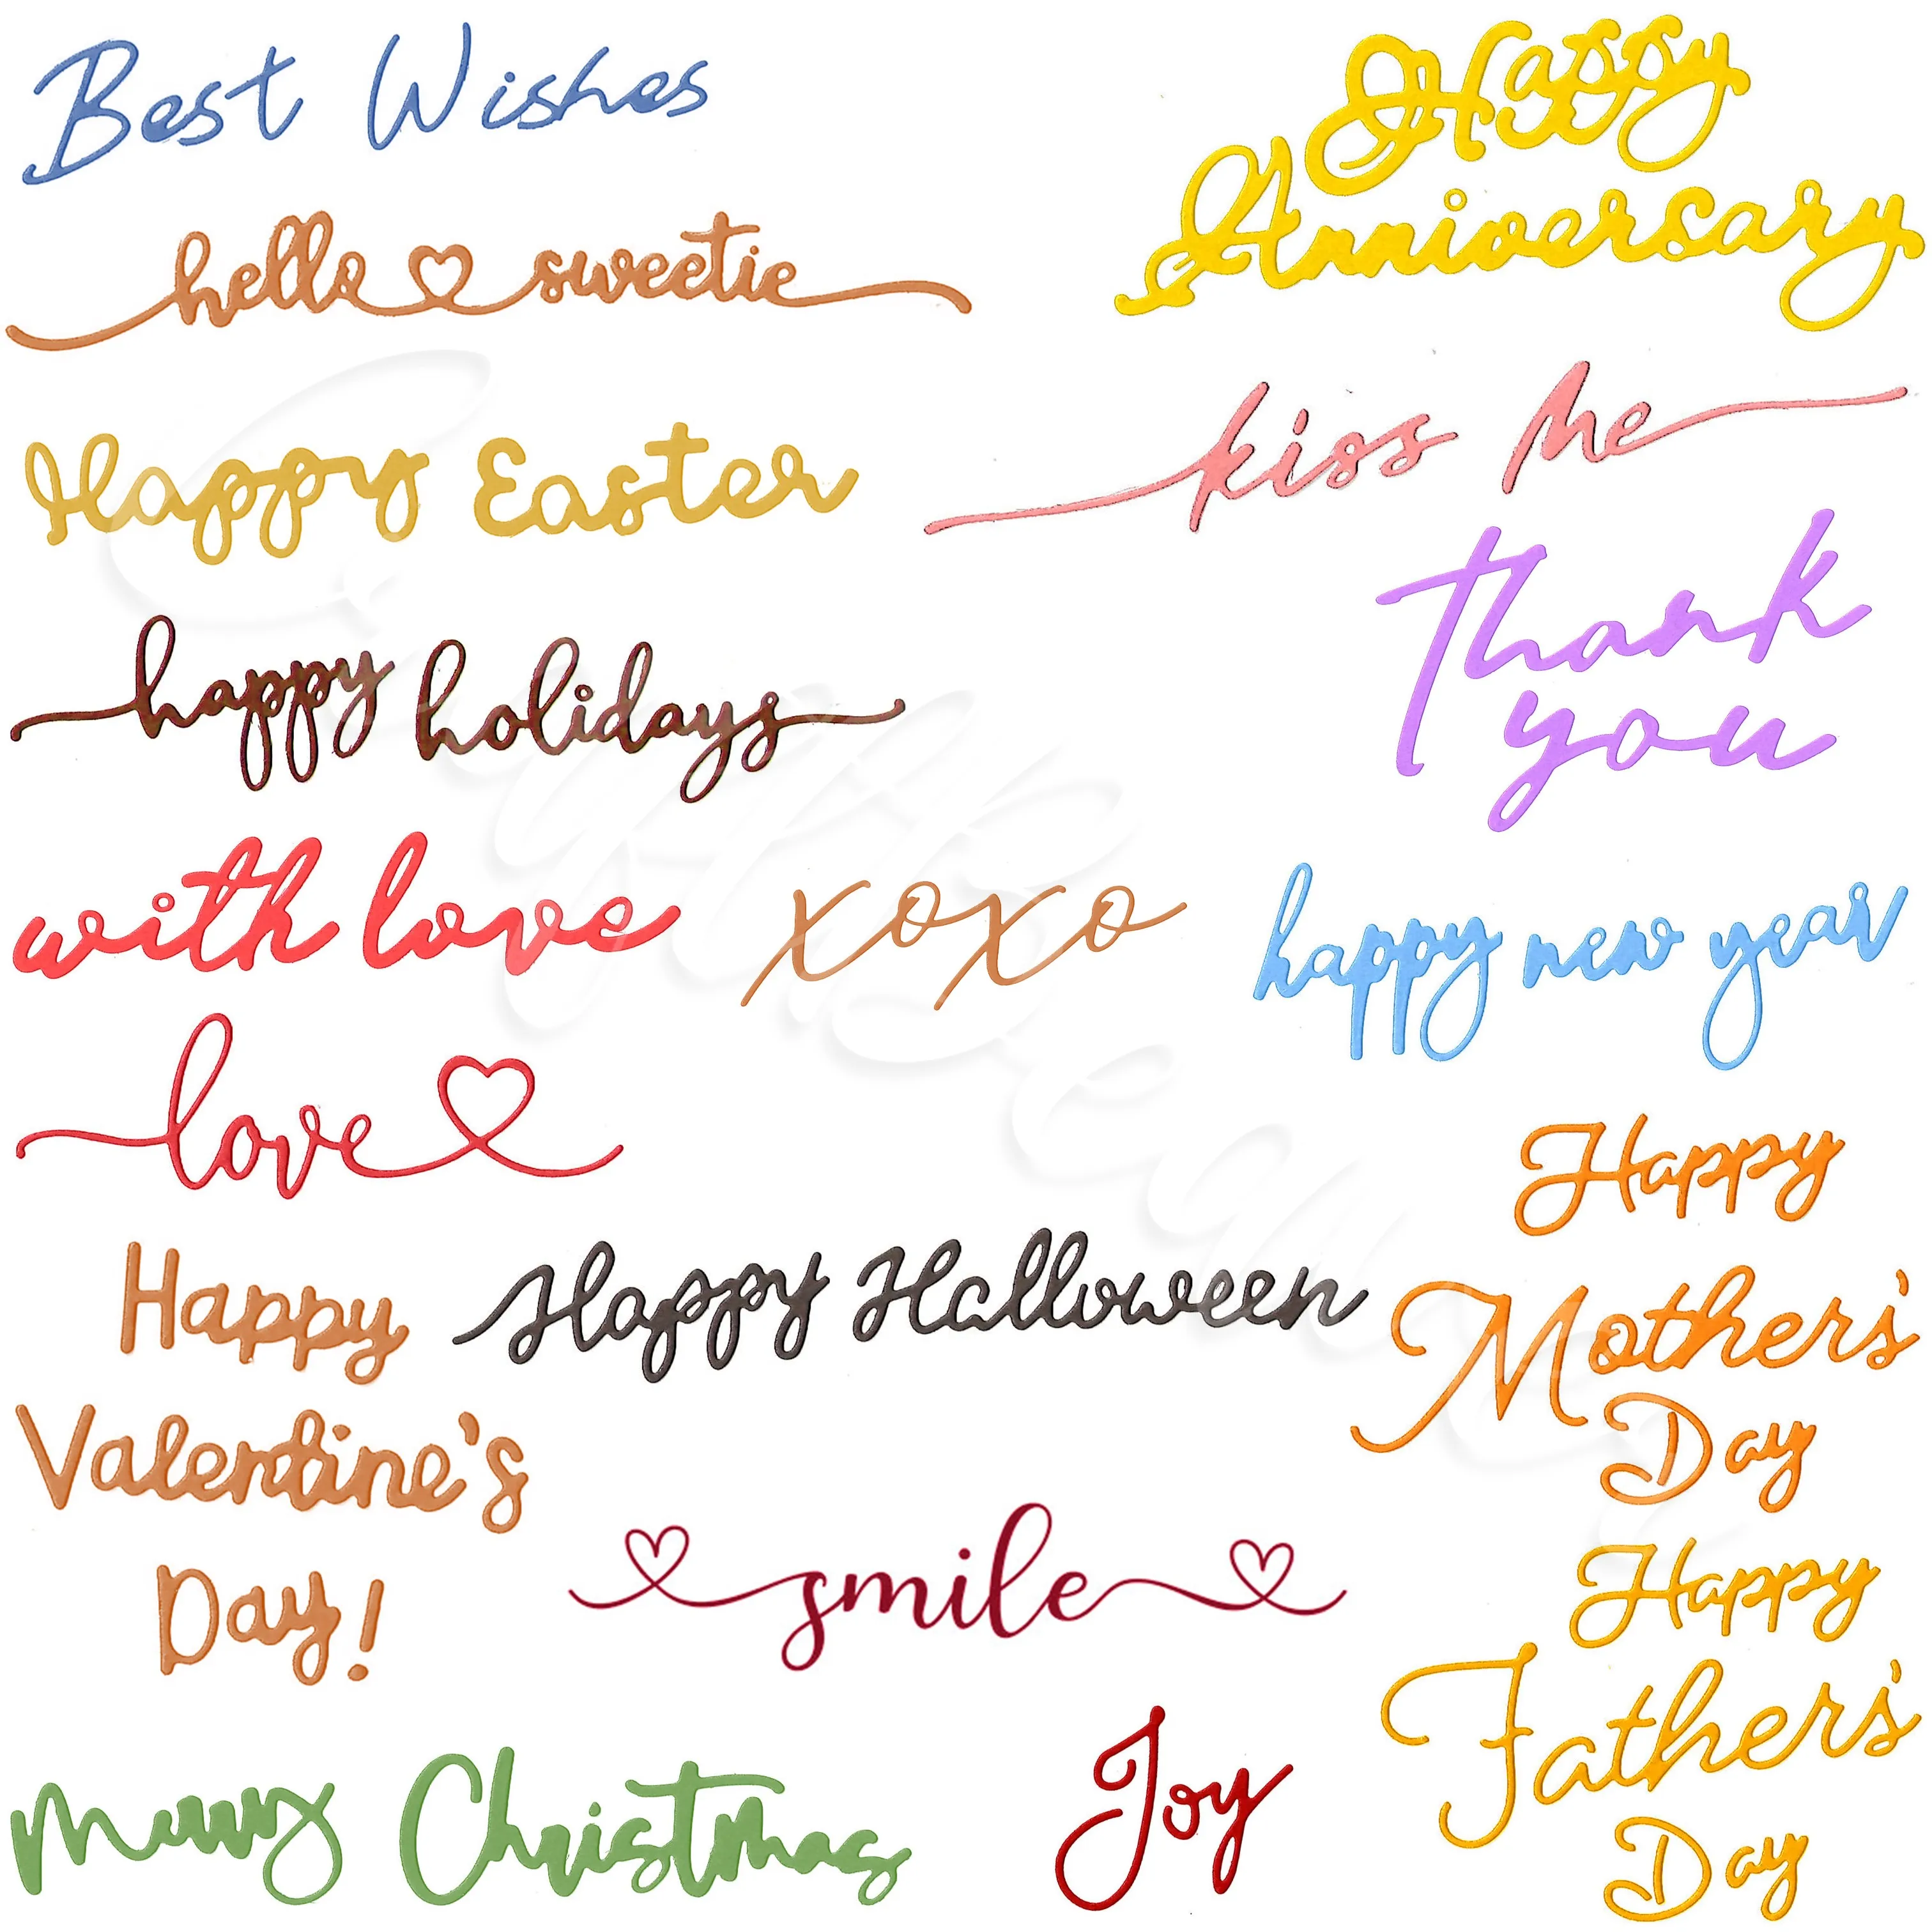 Best Wishes
Happy
Anniversary
hello sweetie
kiss me
Happy Easter
Thank
you
happy holidays
with love
xoxo
happy new year
love
Happy
Mother's
Day
Happy Halloween
Happy
Valentine's
Day!
smile
Happy
Father's
Day
Merry Christmas
Joy